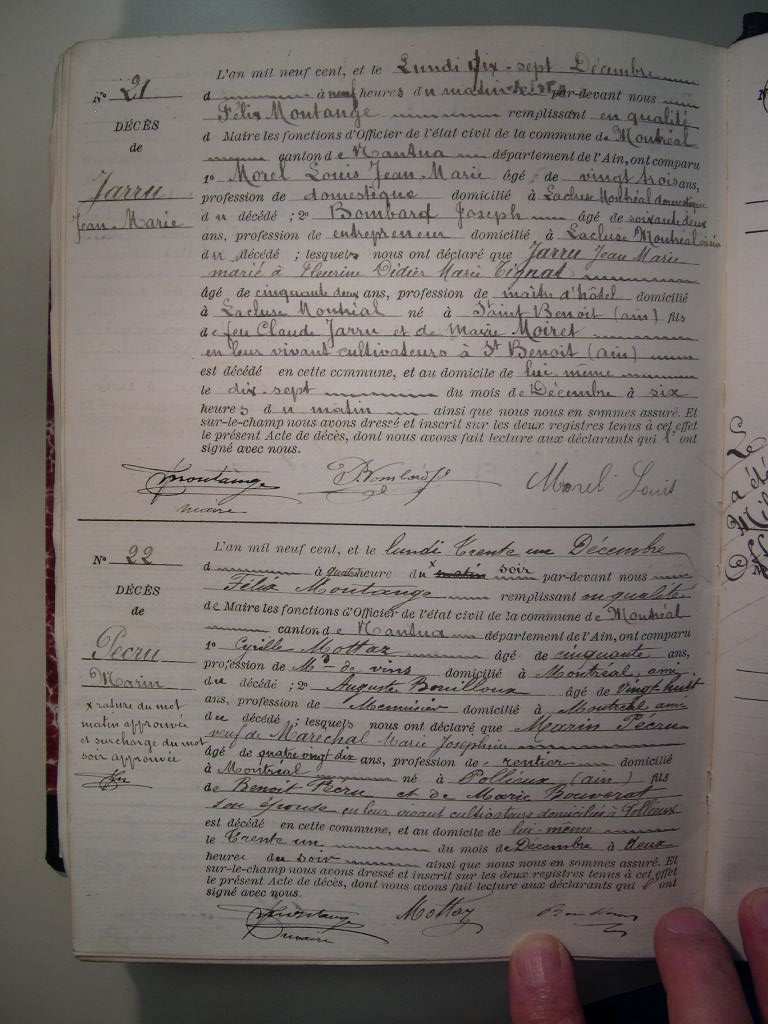 N° 21
DÉCÈS
de
Jarru
Jean-Marie
L'an mil neuf cent, et le Lundi dix-sept Décembre
d à neuf heures du matin par-devant nous
Félix Montange remplissant en qualité
d Maire les fonctions d'Officier de l'état civil de la commune de Montréal
canton de Nantua département de l'Ain, ont comparu
1° Morel Louis Jean-Marie âgé de vingt trois ans,
profession de domestique domicilié à Lacluse Montréal domestique
du décédé ; 2° Bombard Joseph âgé de soixante deux
ans, profession de entrepreneur domicilié à Lacluse Montréal voisin
du décédé ; lesquels nous ont déclaré que Jarru Jean Marie
marié à Fleurine Didier Marie
âgé de cinquante deux ans, profession de maître d'hôtel domicilié
à Lacluse Montréal né à Saint Benoit (ain) fils
de feu Claude Jarru et de Marie Moiret
en leur vivant cultivateurs à St Benoit (ain)
est décédé en cette commune, et au domicile de lui même
le dix-sept du mois de Décembre à six
heures du matin ainsi que nous nous en sommes assuré. Et
sur-le-champ nous avons dressé et inscrit sur les deux registres tenus à cet effet
le présent Acte de décès, dont nous avons fait lecture aux déclarants qui ont
signé avec nous.
Montange Bombard Js Morel Louis
maire
N° 22
DÉCÈS
de
Pécru
Marin
x rature du mot
matin approuvée
et surcharge du mot
soir approuvée
L'an mil neuf cent, et le lundi Trente un Décembre
d à quatre heure du x matin soir par-devant nous
Félix Montange remplissant en qualité
de Maire les fonctions d'Officier de l'état civil de la commune de Montréal
canton de Nantua département de l'Ain, ont comparu
1° Cyrille Mottaz âgé de cinquante ans,
profession de Md de vins domicilié à Montréal, ami
du décédé ; 2° Auguste Bouilloux âgé de Vingt huit
ans, profession de Menuisier domicilié à Montréal ami
du décédé ; lesquels nous ont déclaré que Marin Pécru
veuf de Maréchal Marie Josephine
âgé de quatre vingt dix ans, profession de rentier domicilié
à Montréal né à Pollieux (ain) fils
de Benoit Pécru et de Marie Bouverat
son épouse en leur vivant cultivateurs domiciliés à Pollieux
est décédé en cette commune, et au domicile de lui-même
le Trente un du mois de Décembre à deux
heure du soir ainsi que nous nous en sommes assuré. Et
sur-le-champ nous avons dressé et inscrit sur les deux registres tenus à cet effet
le présent Acte de décès, dont nous avons fait lecture aux déclarants qui ont
signé avec nous.
Montange Mottaz